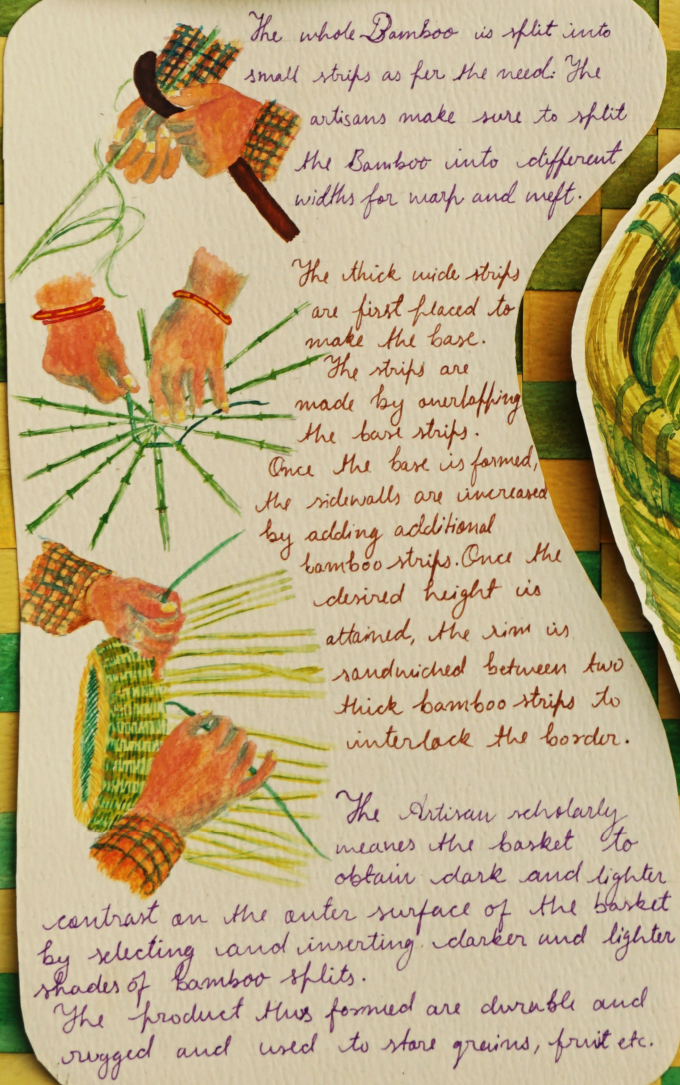 The whole Bamboo is split into
small strips as per the need. The
artisans make sure to split
the Bamboo into different
widths for warp and weft.
The thick wide strips
are first placed to
make the base.
The strips are
made by overlapping
the base strips.
Once the base is formed,
the sidewalls are increased
by adding additional
bamboo strips. Once the
desired height is
attained, the rim is
sandwiched between two
thick bamboo strips to
interlock the border.
The Artisan scholarly
weaves the basket to
obtain dark and lighter
contrast on the outer surface of the basket
by selecting and inserting darker and lighter
shades of bamboo splits.
The product thus formed are durable and
rugged and used to store grains, fruit etc.